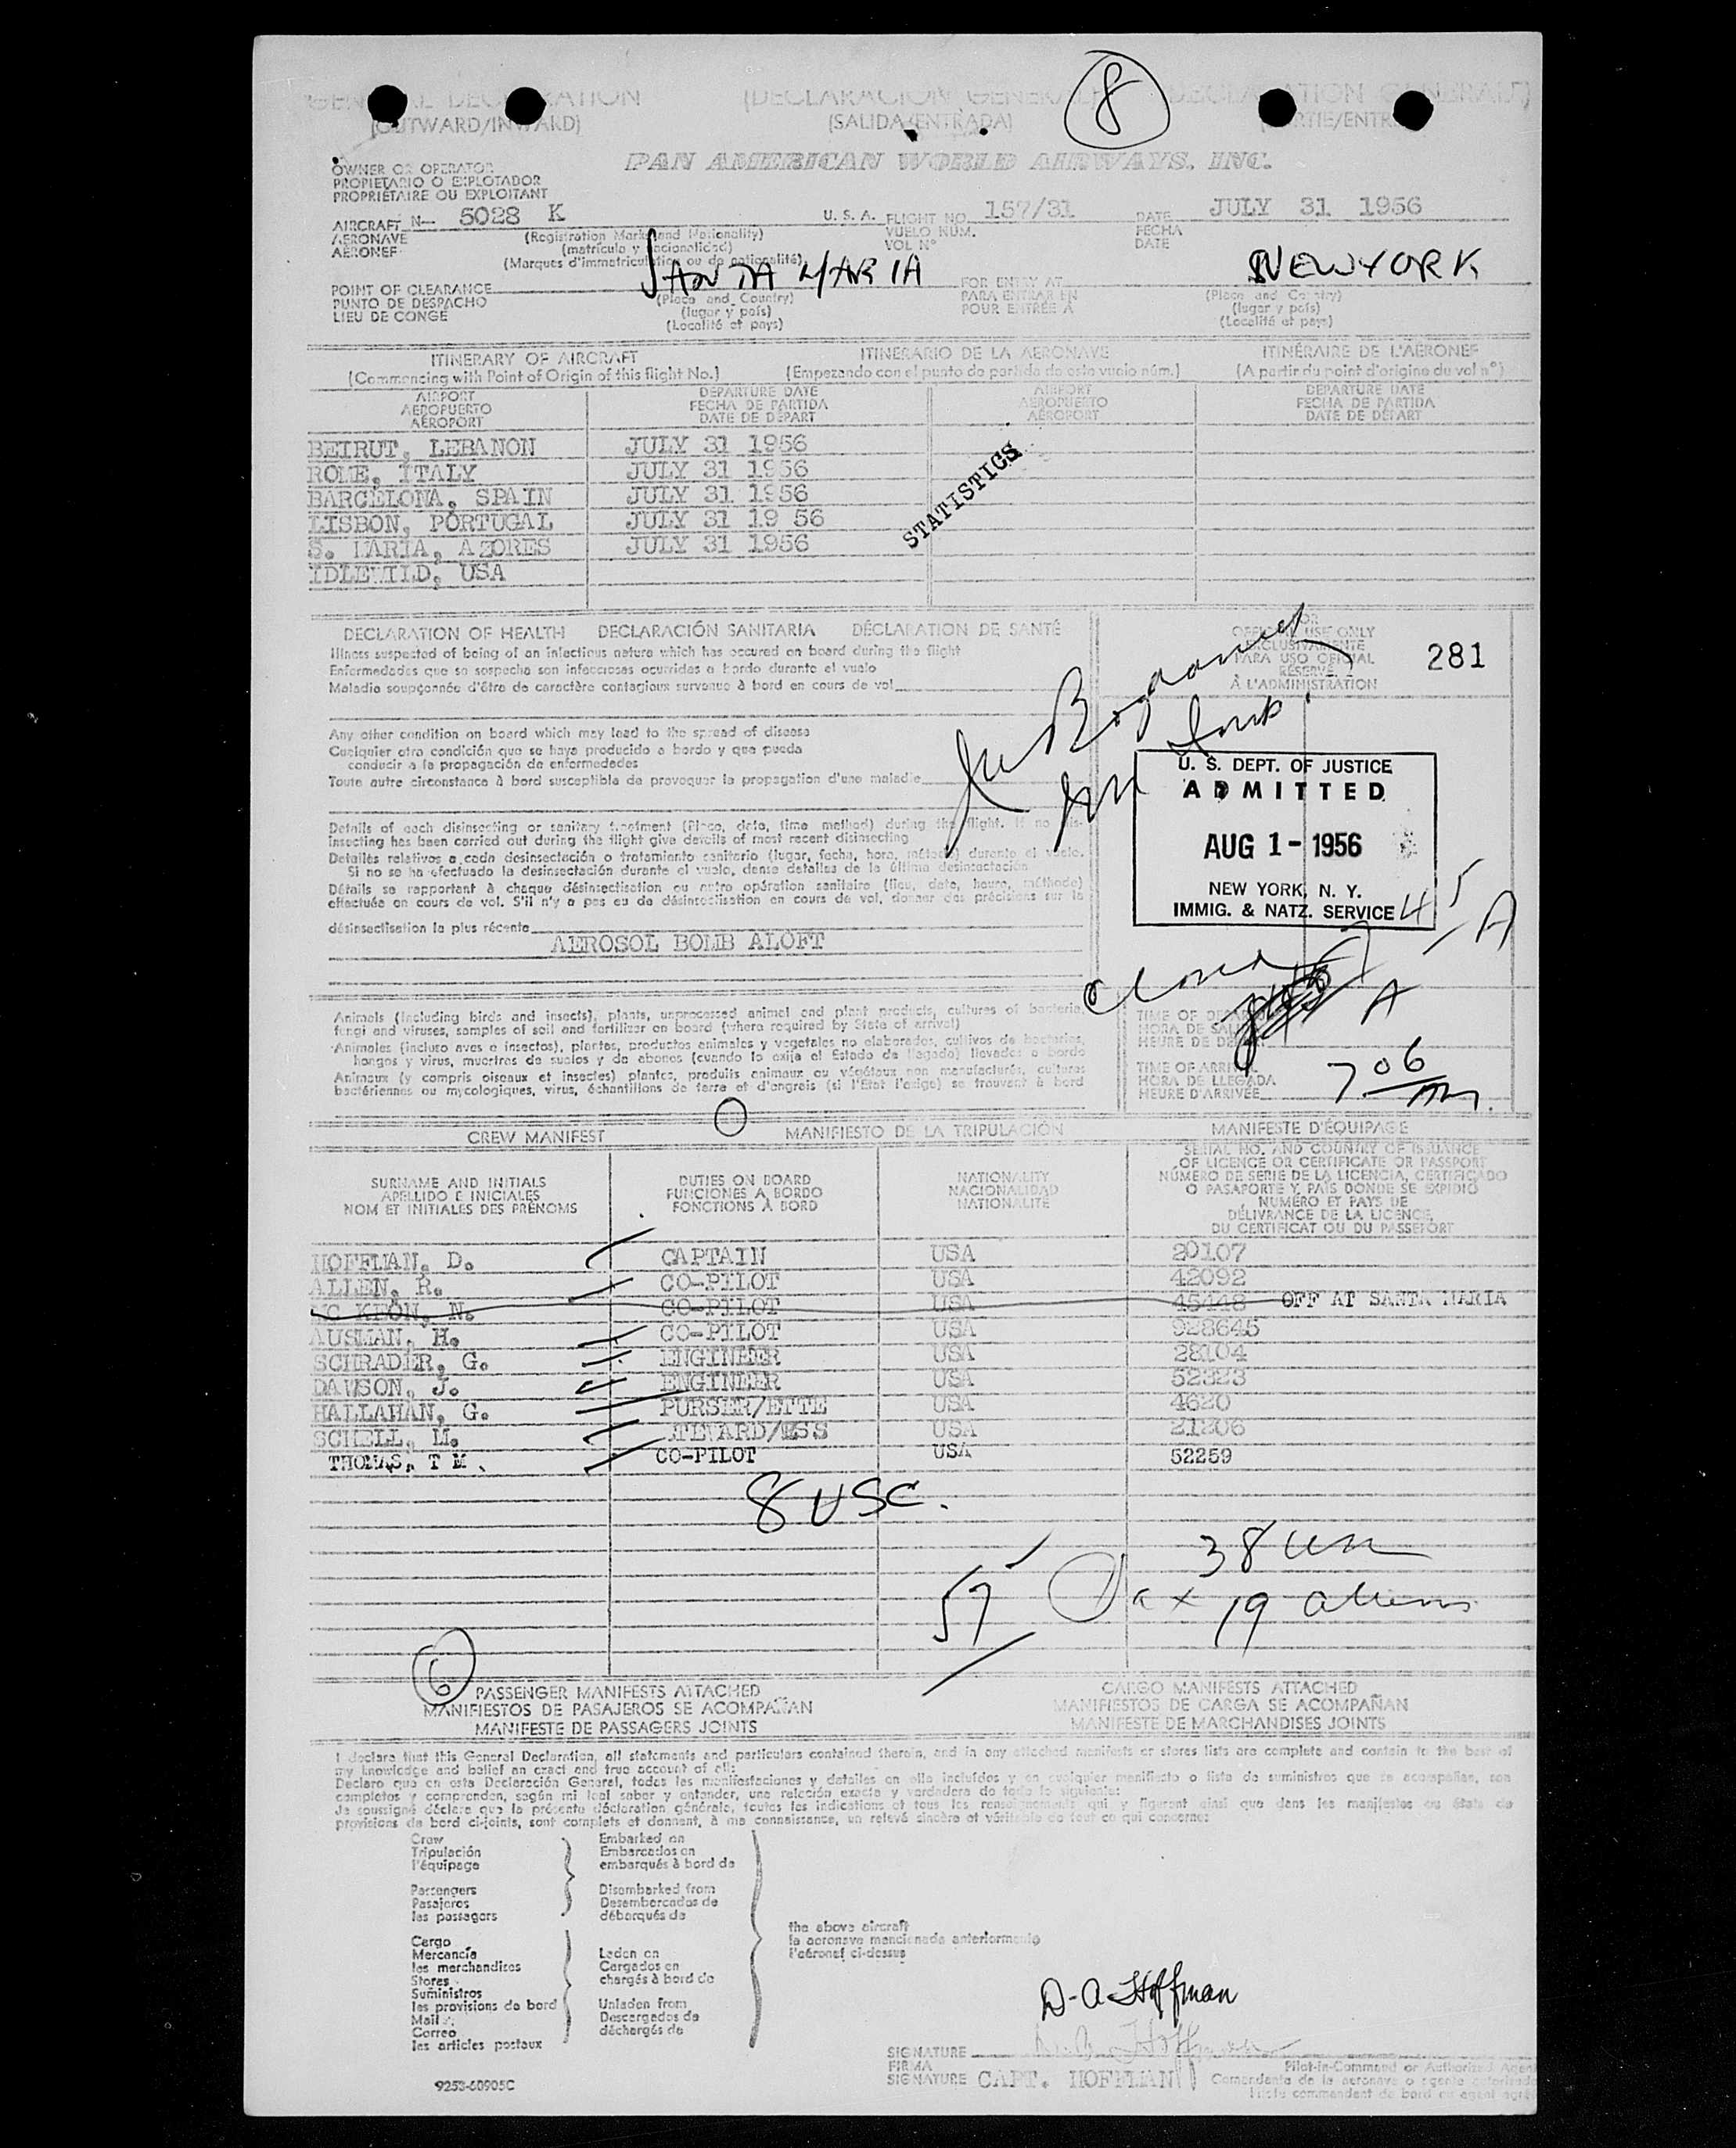 GENERAL DECLARATION (DECLARACION GENERAL) DECLARATION GENERALE)
(OUTWARD/INWARD) (SALIDA/ENTRADA) (SORTIE/ENTREE)
8
PAN AMERICAN WORLD AIRWAYS, INC.
OWNER OR OPERATOR
PROPIETARIO O EXPLOTADOR
PROPRIÉTAIRE OU EXPLOITANT
AIRCRAFT N— 5028 K U. S. A. FLIGHT NO. 157/31 DATE JULY 31 1956
AERONAVE (Registration Marks and Nationality) VUELO NUM. FECHA
AÉRONEF (matrícula y nacionalidad) VOL N° DATE
(Marques d'immatriculation ou de nationalité)
POINT OF CLEARANCE SANTA MARIA FOR ENTRY AT NEW YORK
PUNTO DE DESPACHO (Place and Country) PARA ENTRAR EN (Place and Country)
LIEU DE CONGÉ (lugar y país) POUR ENTRÉE A (lugar y país)
(Localité et pays) (Localité et pays)
ITINERARY OF AIRCRAFT ITINERARIO DE LA AERONAVE ITINÉRAIRE DE L'AÉRONEF
(Commencing with Point of Origin of this flight No.) (Empezando con el punto de partida de este vuelo núm.) (A partir du point d'origine du vol n°)
AIRPORT DEPARTURE DATE AIRPORT DEPARTURE DATE
AEROPUERTO FECHA DE PARTIDA AEROPUERTO FECHA DE PARTIDA
AÉROPORT DATE DE DÉPART AÉROPORT DATE DE DÉPART
BEIRUT, LEBANON JULY 31 1956
ROME, ITALY JULY 31 1956
BARCELONA, SPAIN JULY 31 1956
LISBON, PORTUGAL JULY 31 19 56
S. MARIA, AZORES JULY 31 1956
IDLEWILD, USA
STATISTICS
DECLARATION OF HEALTH DECLARACIÓN SANITARIA DÉCLARATION DE SANTÉ
Illness suspected of being of an infectious nature which has occured on board during the flight
Enfermedades que se sospecha son infecciosas ocurridas a bordo durante el vuelo
Maladie soupçonnée d'être de caractère contagieux survenue à bord en cours de vol
FOR
OFFICIAL USE ONLY
EXCLUSIVAMENTE
PARA USO OFICIAL
RÉSERVÉ
À L'ADMINISTRATION
281
Any other condition on board which may lead to the spread of disease
Cualquier otra condición que se haya producido a bordo y que pueda
conducir a la propagación de enfermedades
Toute autre circonstance à bord susceptible de provoquer la propagation d'une maladie
U. S. DEPT. OF JUSTICE
ADMITTED
AUG 1 - 1956
NEW YORK, N. Y.
IMMIG. & NATZ. SERVICE
Details of each disinsecting or sanitary treatment (Place, date, time method) during the flight. If no dis-
insecting has been carried out during the flight give details of most recent disinsecting
Detalles relativos a cada desinsectación o tratamiento sanitario (lugar, fecha, hora, método) durante el vuelo.
Si no se ha efectuado la desinsectación durante el vuelo, dense detalles de la última desinsectación
Détails se rapportant à chaque désinsectisation ou autre opération sanitaire (lieu, date, heure, méthode)
effectuée en cours de vol. S'il n'y a pas eu de désinsectisation en cours de vol, donner des précisions sur la
désinsectisation la plus récente
AEROSOL BOMB ALOFT
Animals (including birds and insects), plants, unprocessed animal and plant products, cultures of bacteria,
fungi and viruses, samples of soil and fertilizer on board (where required by State of arrival)
Animales (incluso aves e insectos), plantas, productos animales y vegetales no elaborados, cultivos de bacterias,
hongos y virus, muestras de suelos y de abonos (cuando lo exija el Estado de llegada) llevados a bordo
Animaux (y compris oiseaux et insectes) plantes, produits animaux ou végétaux non manufacturés, cultures
bactériennes ou mycologiques, virus, échantillons de terre et d'engrais (si l'Etat l'exige) se trouvant à bord
TIME OF DEPARTURE
HORA DE SALIDA
HEURE DE DÉPART
TIME OF ARRIVAL
HORA DE LLEGADA 7 06
HEURE D'ARRIVÉE
CREW MANIFEST MANIFIESTO DE LA TRIPULACIÓN MANIFESTE D'ÉQUIPAGE
SURNAME AND INITIALS
APELLIDO E INICIALES
NOM ET INITIALES DES PRÉNOMS
DUTIES ON BOARD
FUNCIONES A BORDO
FONCTIONS À BORD
NATIONALITY
NACIONALIDAD
NATIONALITÉ
SERIAL NO. AND COUNTRY OF ISSUANCE
OF LICENCE OR CERTIFICATE OR PASSPORT
NÚMERO DE SERIE DE LA LICENCIA, CERTIFICADO
O PASAPORTE Y PAÍS DONDE SE EXPIDIÓ
NUMÉRO ET PAYS DE
DÉLIVRANCE DE LA LICENCE,
DU CERTIFICAT OU DU PASSEPORT
HOFFMAN, D. CAPTAIN USA 20107
ALLEN, R. CO-PILOT USA 42092
MC KEON, N. CO-PILOT USA 45448 OFF AT SANTA MARIA
AUSMAN, H. CO-PILOT USA 928645
SCHRADER, G. ENGINEER USA 28104
DAWSON, J. ENGINEER USA 52323
HALLAHAN, G. PURSER/ETTE USA 4620
SCHELL, M. STEWARD/ESS USA 21206
THOMAS, T M. CO-PILOT USA 52259
8 USC.
38 usc
57 1 a x 19 aliens
6
PASSENGER MANIFESTS ATTACHED CARGO MANIFESTS ATTACHED
MANIFIESTOS DE PASAJEROS SE ACOMPAÑAN MANIFIESTOS DE CARGA SE ACOMPAÑAN
MANIFESTE DE PASSAGERS JOINTS MANIFESTE DE MARCHANDISES JOINTS
I declare that this General Declaration, all statements and particulars contained therein, and in any attached manifests or stores lists are complete and contain to the best of
my knowledge and belief an exact and true account of all:
Declaro que en esta Declaración General, todas las manifestaciones y detalles en ella incluídos y en cualquier manifiesto o lista de suministros que se acompañan, son
completos y comprenden, según mi leal saber y entender, una relación exacta y verdadera de todo lo siguiente:
Je soussigné déclare que la présente déclaration générale, toutes les indications et tous les renseignements qui y figurent ainsi que dans les manifestes ou états de
provisions de bord ci-joints, sont complets et donnent, à ma connaissance, un relevé sincère et véritable de tout ce qui concerne:
Crew Embarked on
Tripulación Embarcados en
l'équipage embarqués à bord de
Passengers Disembarked from
Pasajeros Desembarcados de
les passagers débarqués de
the above aircraft
la aeronave mencionada anteriormente
l'aéronef ci-dessus
Cargo
Mercancía Laden on
les marchandises Cargados en
Stores chargés à bord de
Suministros
les provisions de bord Unladen from
Mail Descargados de
Correo déchargés de
les articles postaux
D. A. Hoffman
SIGNATURE D. A. Hoffman
FIRMA
SIGNATURE CAPT. HOFFMAN
Pilot-in-Command or Authorized Agent
Comandante de la aeronave o agente autorizado
9253-60905C